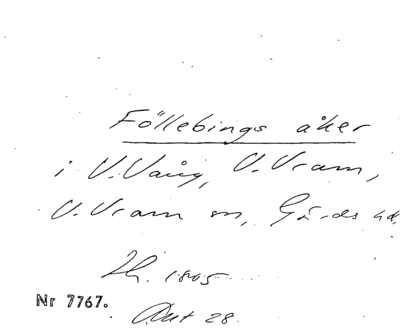 Föllebings åker
i V.Vång, V.Vram,
V.Vram sn, Gärds hd.
1805
Nr 7767.
Akt 28.